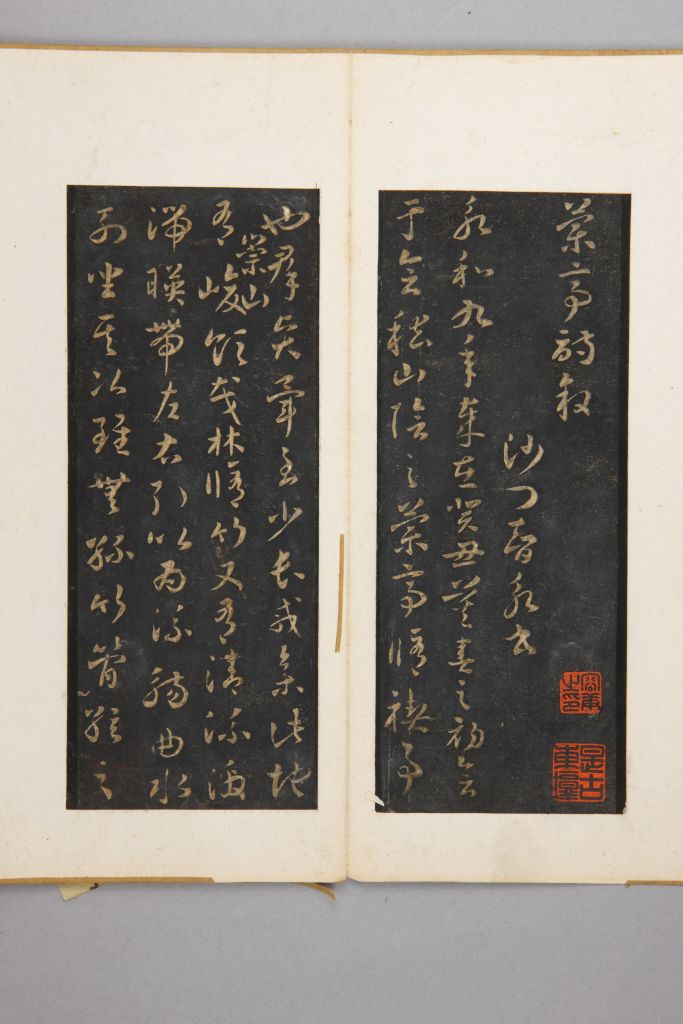 蘭亭詩叙
沙門智永書
永和九年歲在癸丑暮春之初會
于會稽山陰之蘭亭脩禊事
也羣賢畢至少長咸集此地
有崇山峻領茂林脩竹又有清流激
湍暎帶左右引以為流觴曲水
列坐其次雖無絲竹管絃之